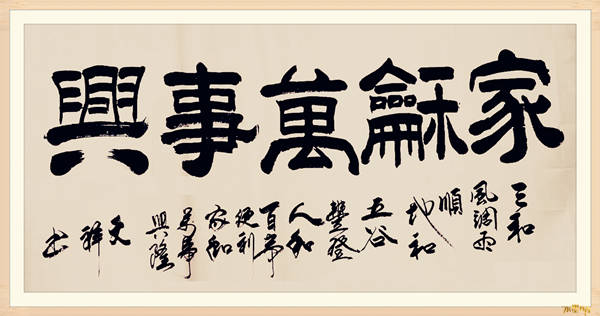 家龢萬事興
天和
風調雨
順
地和
五谷
豐登
人和
百事
便利
家和
萬事
興隆
文
祥
书